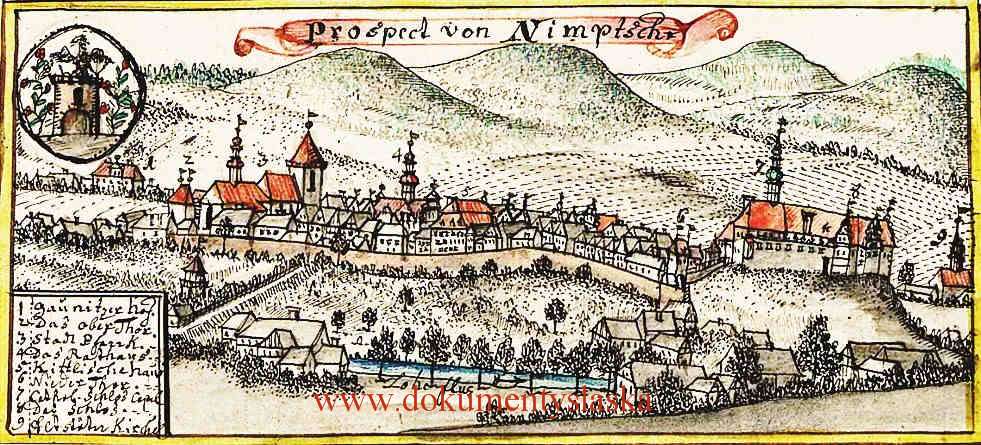 Prospect von Nimptsche
1 2 3 4 5 6 7 8 9
1 Gaunitzer hof.
2 Das ober Thor
3 Stadt Pfarrk.
4 Das Rathaus
5 Kittlische haus
6 Nieder Thor.
7 Schlos Capel
8 Das Schlos
9 Kirche
www.dokumentyslaska